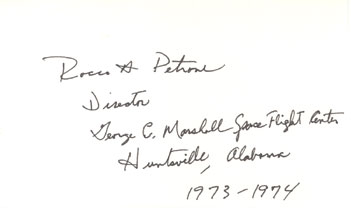 Rocco A Petrone
Director
George C. Marshall Space Flight Center
Huntsville, Alabama
1973-1974